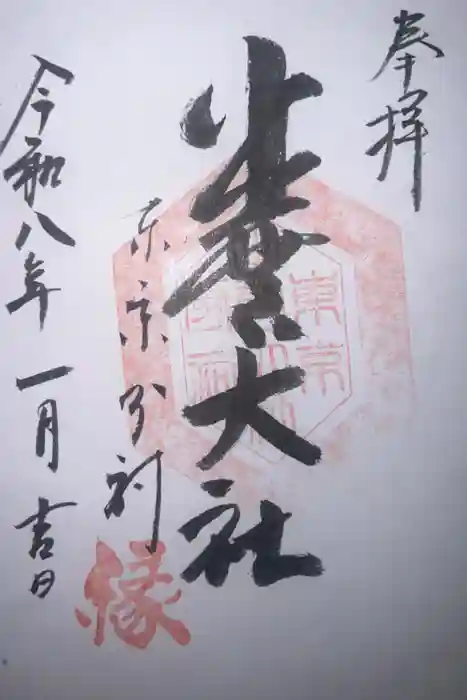 奉拝
出雲大社
東京分祠
令和八年一月吉日
縁